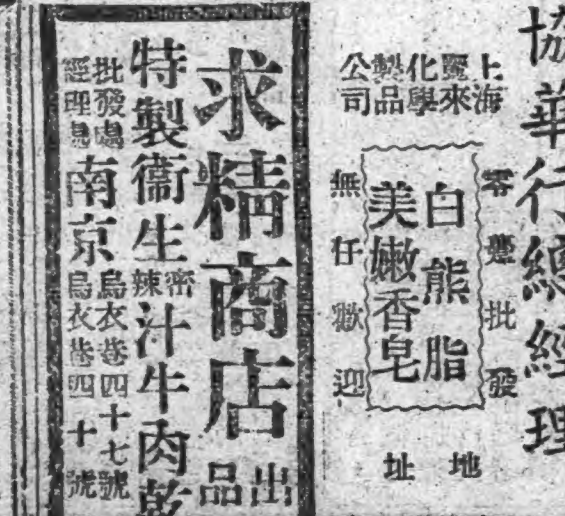 協華行總經理
上海麗來化學製品公司
零躉批發
白熊脂
美嫩香皂
無任歡迎
地址
求精商店出品
特製衞生蜜辣汁牛肉乾
批發處
經理處
南京
烏衣巷四十七號
烏衣巷四十號